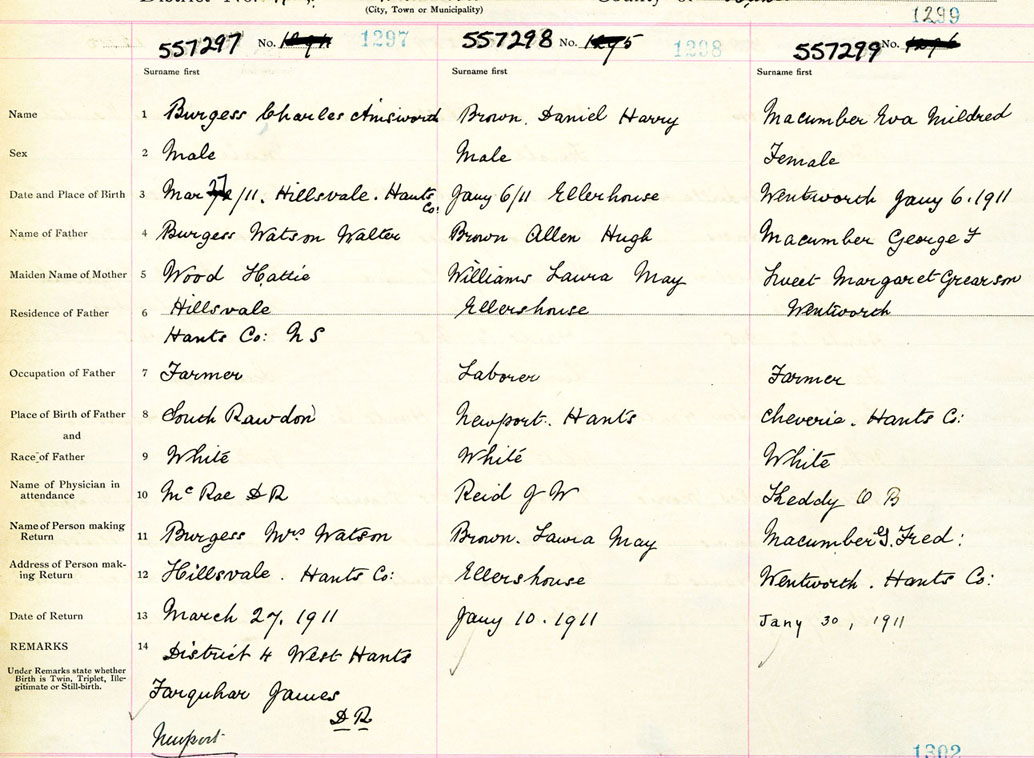 (City, Town or Municipality)
1299
557297 No. 1297
557298 No. 1295 1298
557299 No. 1296
Surname first
Surname first
Surname first
Name 1 Burgess Charles Ainsworth
Brown. Daniel Harry
Macumber Eva Mildred
Sex 2 Male
Male
Female
Date and Place of Birth 3 Mar /11. Hillsvale. Hants Co:
Jany 6/11 Ellerhouse
Wentworth Jany 6. 1911
Name of Father 4 Burgess Watson Walter
Brown Allen Hugh
Macumber George F
Maiden Name of Mother 5 Wood Hattie
Williams Laura May
Sweet Margaret Grearson
Residence of Father 6 Hillsvale
Hants Co: N S
Ellershouse
Wentworth
Occupation of Father 7 Farmer
Laborer
Farmer
Place of Birth of Father 8 South Rawdon
Newport. Hants
Cheverie. Hants Co:
and
Race of Father 9 White
White
White
Name of Physician in
attendance 10 McRae D R
Reid J W
Keddy O B
Name of Person making
Return 11 Burgess Mrs Watson
Brown. Laura May
Macumber G. Fred:
Address of Person mak-
ing Return 12 Hillsvale. Hants Co:
Ellershouse
Wentworth. Hants Co:
Date of Return 13 March 27, 1911
Jany 10. 1911
Jany 30, 1911
REMARKS 14 District 4 West Hants
Under Remarks state whether
Birth is Twin, Triplet, Ille-
gitimate or Still-birth.
Farquhar James
D R
Newport
1302